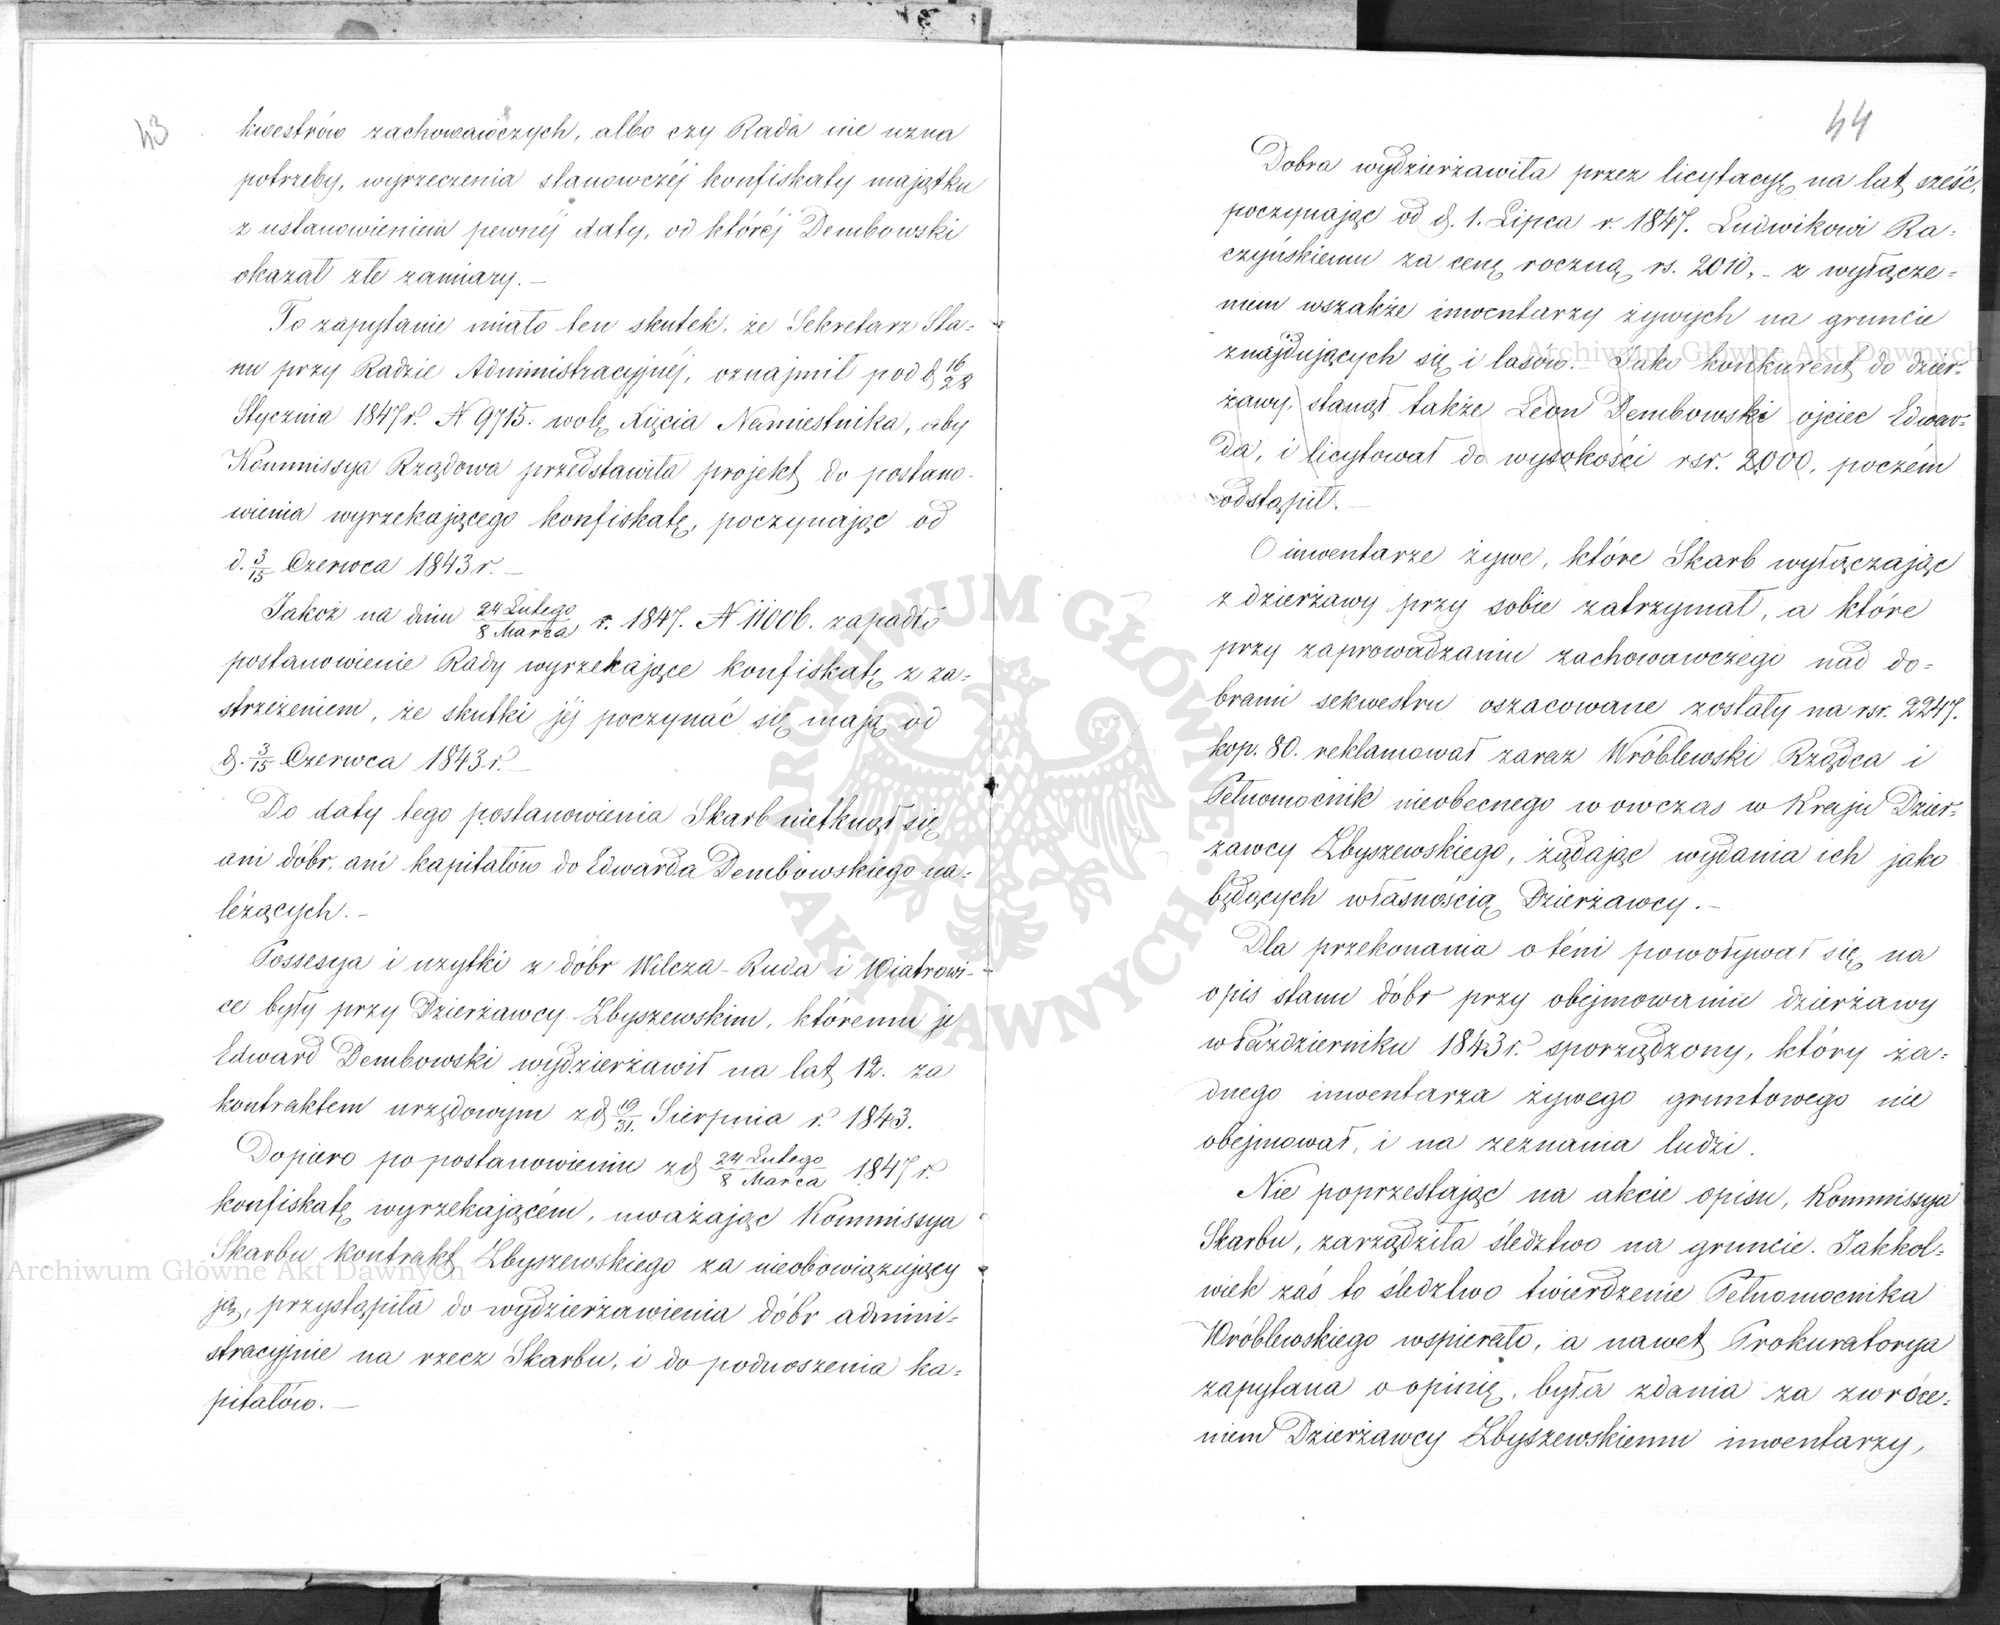 43
kwestrów zachowawczych, albo czy Rada nie uzna
potrzeby, wyrzeczenia stanowczéj konfiskaty majątku
z ustanowieniem pewnéj daty, od któréj Dembowski
okazał złe zamiary. —
To zapytanie miało ten skutek, że Sekretarz Sta=
nu przy Radzie Administracyjnéj, oznajmił pod d. 16/28
Stycznia 1847 r. N 9715. wolę Xięcia Namiestnika, aby
Kommissya Rządowa przedstawiła projekt do postano-
wienia wyrzekającego konfiskatę, poczynając od
d. 3/15 Czerwca 1843 r. —
Jakoż na dniu 24 Lutego/8 Marca r. 1847. N 11006. zapadło
postanowienie Rady wyrzekające konfiskatę z za=
strzeżeniem, że skutki jéj poczynać się mają od
d. 3/15 Czerwca 1843 r. —
Do daty tego postanowienia Skarb nietknął się
ani dóbr, ani kapitałów do Edwarda Dembowskiego na=
leżących. —
Possesya i użytki z dóbr Wilcza-Ruda i Wiatrowi-
ce były przy Dzierżawcy Zbyszewskim, któremu je
Edward Dembowski wydzierżawił na lat 12. za
kontraktem urzędowym z d. 19/31. Sierpnia r. 1843.
Dopiero po postanowieniu z d. 24 Lutego/8 Marca 1847 r.
konfiskatę wyrzekającém, uważając Kommissya
Skarbu kontrakt Zbyszewskiego za nieobowiązujący
ją, przystąpiła do wydzierżawienia dóbr admini=
stracyjnie na rzecz Skarbu, i do podnoszenia ka=
pitałów. —
44
Dobra wydzierżawiła przez licytacyę na lat sześć,
poczynając od d. 1. Lipca r. 1847. Ludwikowi Ra=
czyńskiemu za cenę roczną rs. 2010, – z wyłącze=
niem wszakże inwentarzy żywych na gruncie
znajdujących się i lasów. – Jako konkurent do dzier=
żawy, stanął także Leon Dembowski ojciec Edwar=
da, i licytował do wysokości rsr. 2000, poczém
odstąpił. —
O inwentarze żywe, które Skarb wyłączając
z dzierżawy przy sobie zatrzymał, a które
przy zaprowadzaniu zachowawczego nad do=
brami sekwestru oszacowane zostały na rsr. 2247.
kop. 80. reklamował zaraz Wróblewski Rządca i
Pełnomocnik nieobecnego wówczas w Kraju Dzier=
żawcy Zbyszewskiego, żądając wydania ich jako
będących własnością Dzierżawcy. —
Dla przekonania o tém powoływał się na
opis stanu dóbr przy obejmowaniu dzierżawy
w Październiku 1843 r. sporządzony, który ża=
dnego inwentarza żywego gruntowego nie
obejmował, i na zeznania ludzi.
Nie poprzestając na akcie opisu, Kommissya
Skarbu, zarządziła śledztwo na gruncie. Jakkol=
wiek zaś to śledztwo twierdzenie Pełnomocnika
Wróblewskiego wspierało, a nawet Prokuratorya
zapytana o opinię, była zdania za zwróce=
niem Dzierżawcy Zbyszewskiemu inwentarzy,
Archiwum Główne Akt Dawnych
Archiwum Główne Akt Dawnych
ARCHIWUM GŁÓWNE AKT DAWNYCH